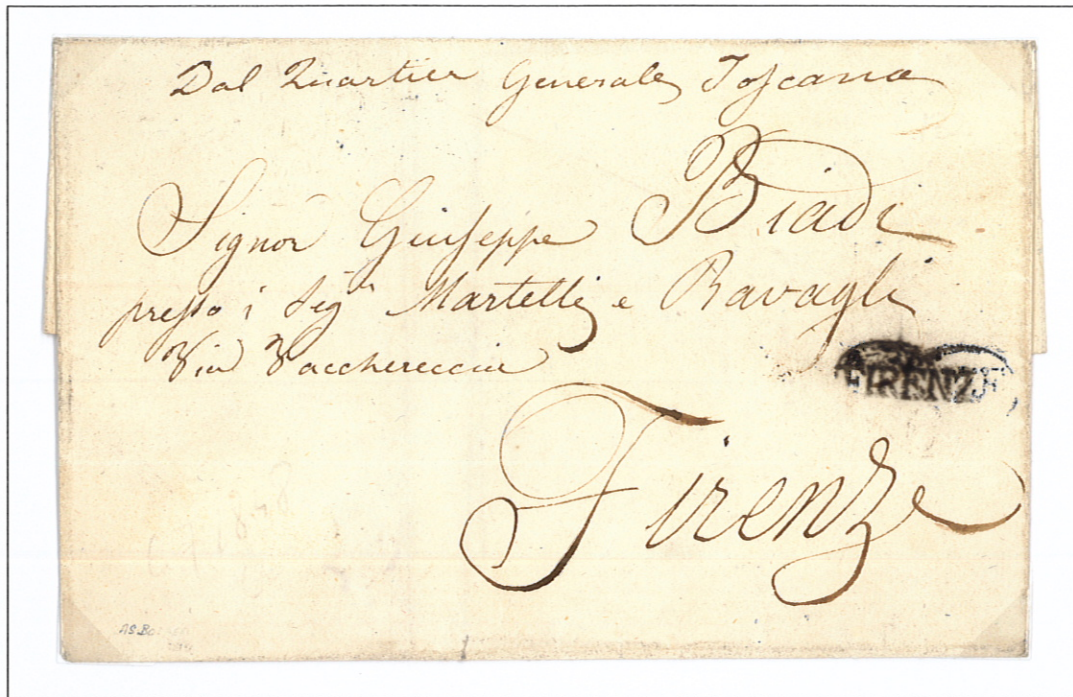 Dal Quartier Generale Toscano
Signor Giuseppe Biadi
presso i Sig.ri Martelli e Ravagli
Via Vacchereccia
FIRENZE
Firenze